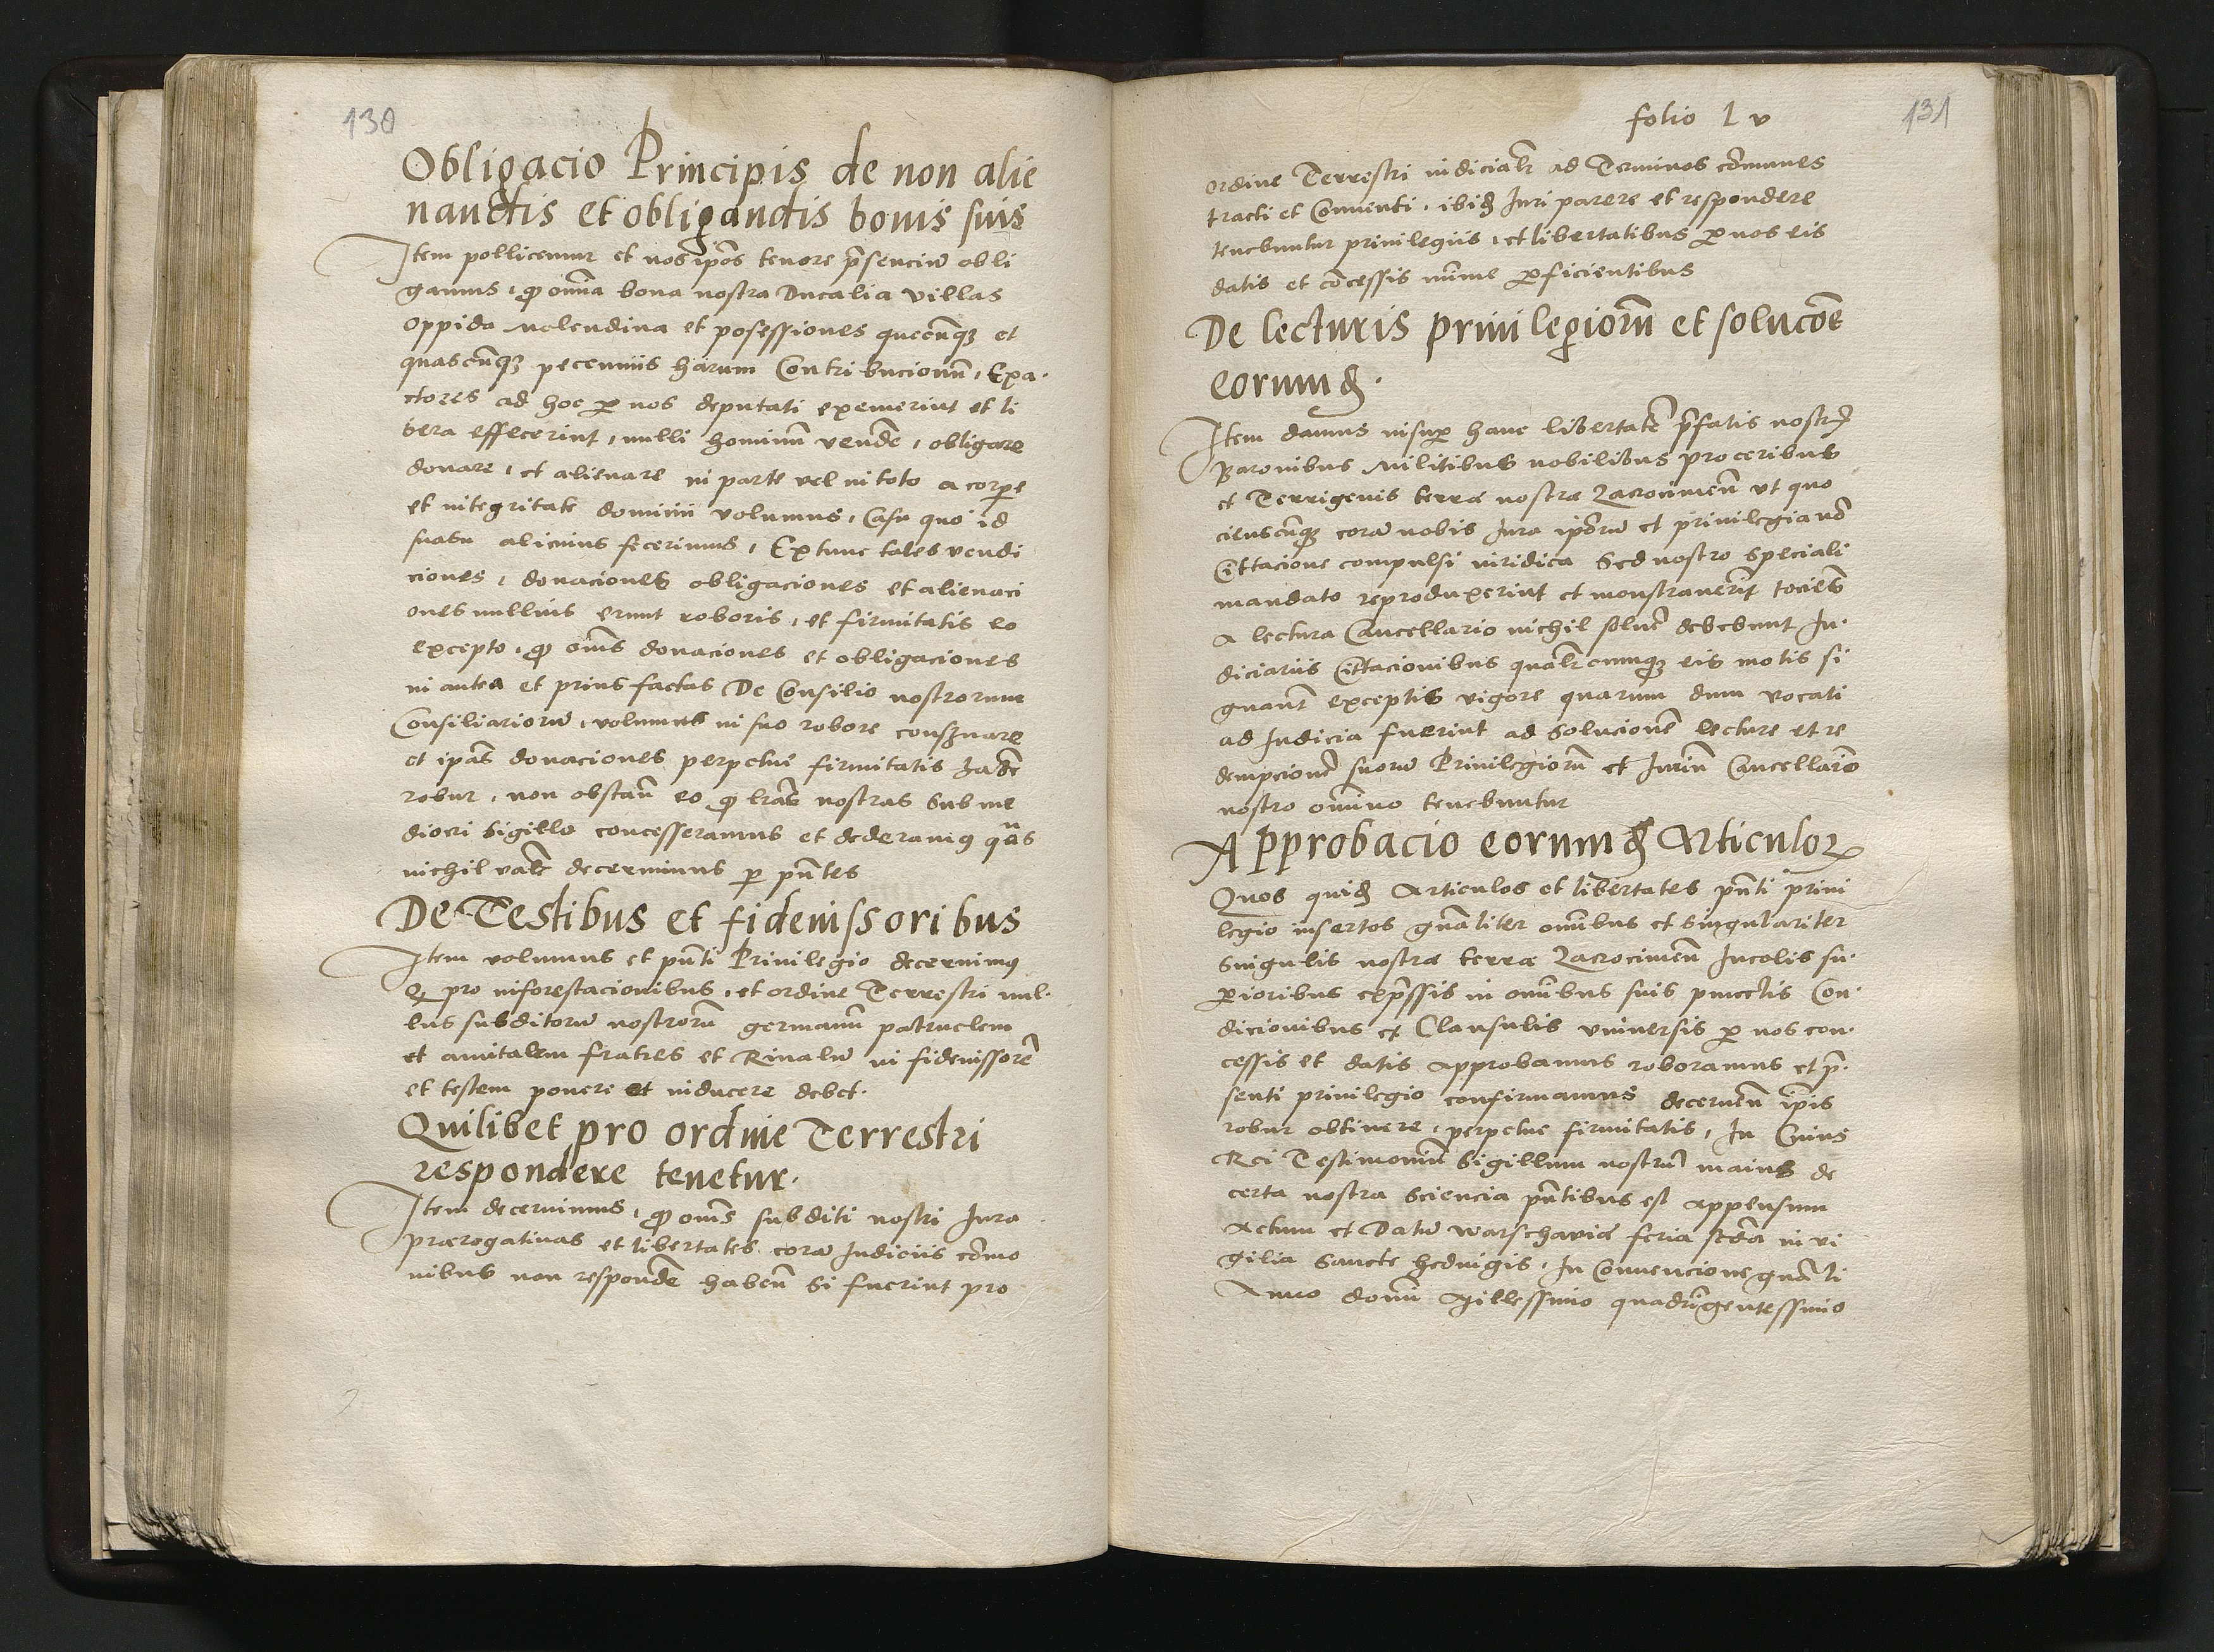 130
Obligacio Principis de non alie
nandis et obligandis bonis suis
Item pollicemur et nos ip̃os tenore p̃senciũ obli
gamus, ꝙ om̃ia bona nostra Ducalia villas
oppida molendina et posessiones quecũqꝫ et
quascũqꝫ pecuniis harum Contribucionũ, Exa⸗
ctores ad hoc ꝑ nos deputati exemerint et li
bera effecerint, nulli hominũ vendẽ, obligare
donare, et alienare in parte vel in toto a corꝑe
et integritate dominii volumus, Casu quo id
suasu alicuius fecerimus, Extunc tales vendi
ciones, donaciones obligaciones et alienaci
ones nullius erunt roboris, et firmitatis eo
excepto, ꝙ om̃s donaciones et obligaciones
in antea et prius factas De Consilio nostrorum
Consiliariorũ, volumus in suo robore conẜuare
et ip̃as donaciones perpetue firmitatis
robur, non obstañ eo ꝙ lr̃as nostras sub me
diocri sigillo concesseramus et dederamꝰ
nichil valẽ decernimus ꝑ pñtes
De Testibus et fideiussoribus
Item volumus et pñti Privilegio decernimꝰ
ꝙ pro inforestacionibus, et ordine Terrestri nul⸗
lus subditorũ nostrorũ germanũ patruelem
et amitalem fratres et Rivalũ in fideiussorẽ
et testem ponere et inducere debet.
Quilibet pro ordine Terrestri
respondere tenetur.
Item decernimus, ꝙ om̃s subditi nostri Iura
prærogativas et libertates corã Iudiciis cõmu
nibus non respondẽ habeñ si fuerint pro
folio L v
131
ordine Terrestri iudicialr̃ ad Terminos cõmunes
tracti et Conventi, ibid̃ Iuri parere et respondere
tenebuntur privilegiis, et libertatibus ꝑ nos eis
datis et cõcessis minime ꝓficientibus
De lecturis privilegiorũ et solucõe
eorumd̃.
Item damus insuꝑ hanc libertatẽ p̃fatis nostris
Baronibus Militibus nobilibus proceribus
et Terrigenis terræ nostræ Zacrocimeñ vt quo
cienscũqꝫ corã nobis Iura ip̃orũ et privilegia nõ
Cittacione compulsi iuridica Sed nostro speciali
mandato reproduxerint et monstraverĩt tociens
a lectura Cancellario nichil solvẽ debebunt Iu⸗
diciariis Cittacionibus qualr̃cumqꝫ eis motis si
gnañt exceptis vigore quarum dum vocati
ad Iudicia fuerint ad solucionẽ lecture et re
dempcionẽ suorũ Privilegiorũ et Iuriũ Cancellario
nostro om̃ino tenebuntur
Approbacio eorumd̃ Articuloꝝ
Quos quid̃ Articulos et libertates pñti privi
legio insertos gñaliter om̃ibus et singulariter
singulis nostræ terræ Zacrocimeñ Incolis su⸗
ꝑioribus exp̃ssis in om̃ibus suis punctis Con⸗
dicionibus et Clausulis vniversis ꝑ nos con⸗
cessis et datis approbamus roboramus et p̃⸗
senti privilegio confirmamus decerneñ ip̃is
robur obtinere, perpetue firmitatis, In Cuius
Rei Testimoniũ Sigillum nostrũ maius de
certa nostra Sciencia pñtibus est appensum
Actum et Datũ Warschaviæ feria scďa in vi
gilia Sancte hedvigis, In Convencione gñali
Anno domi Millessimo quadringentessimo